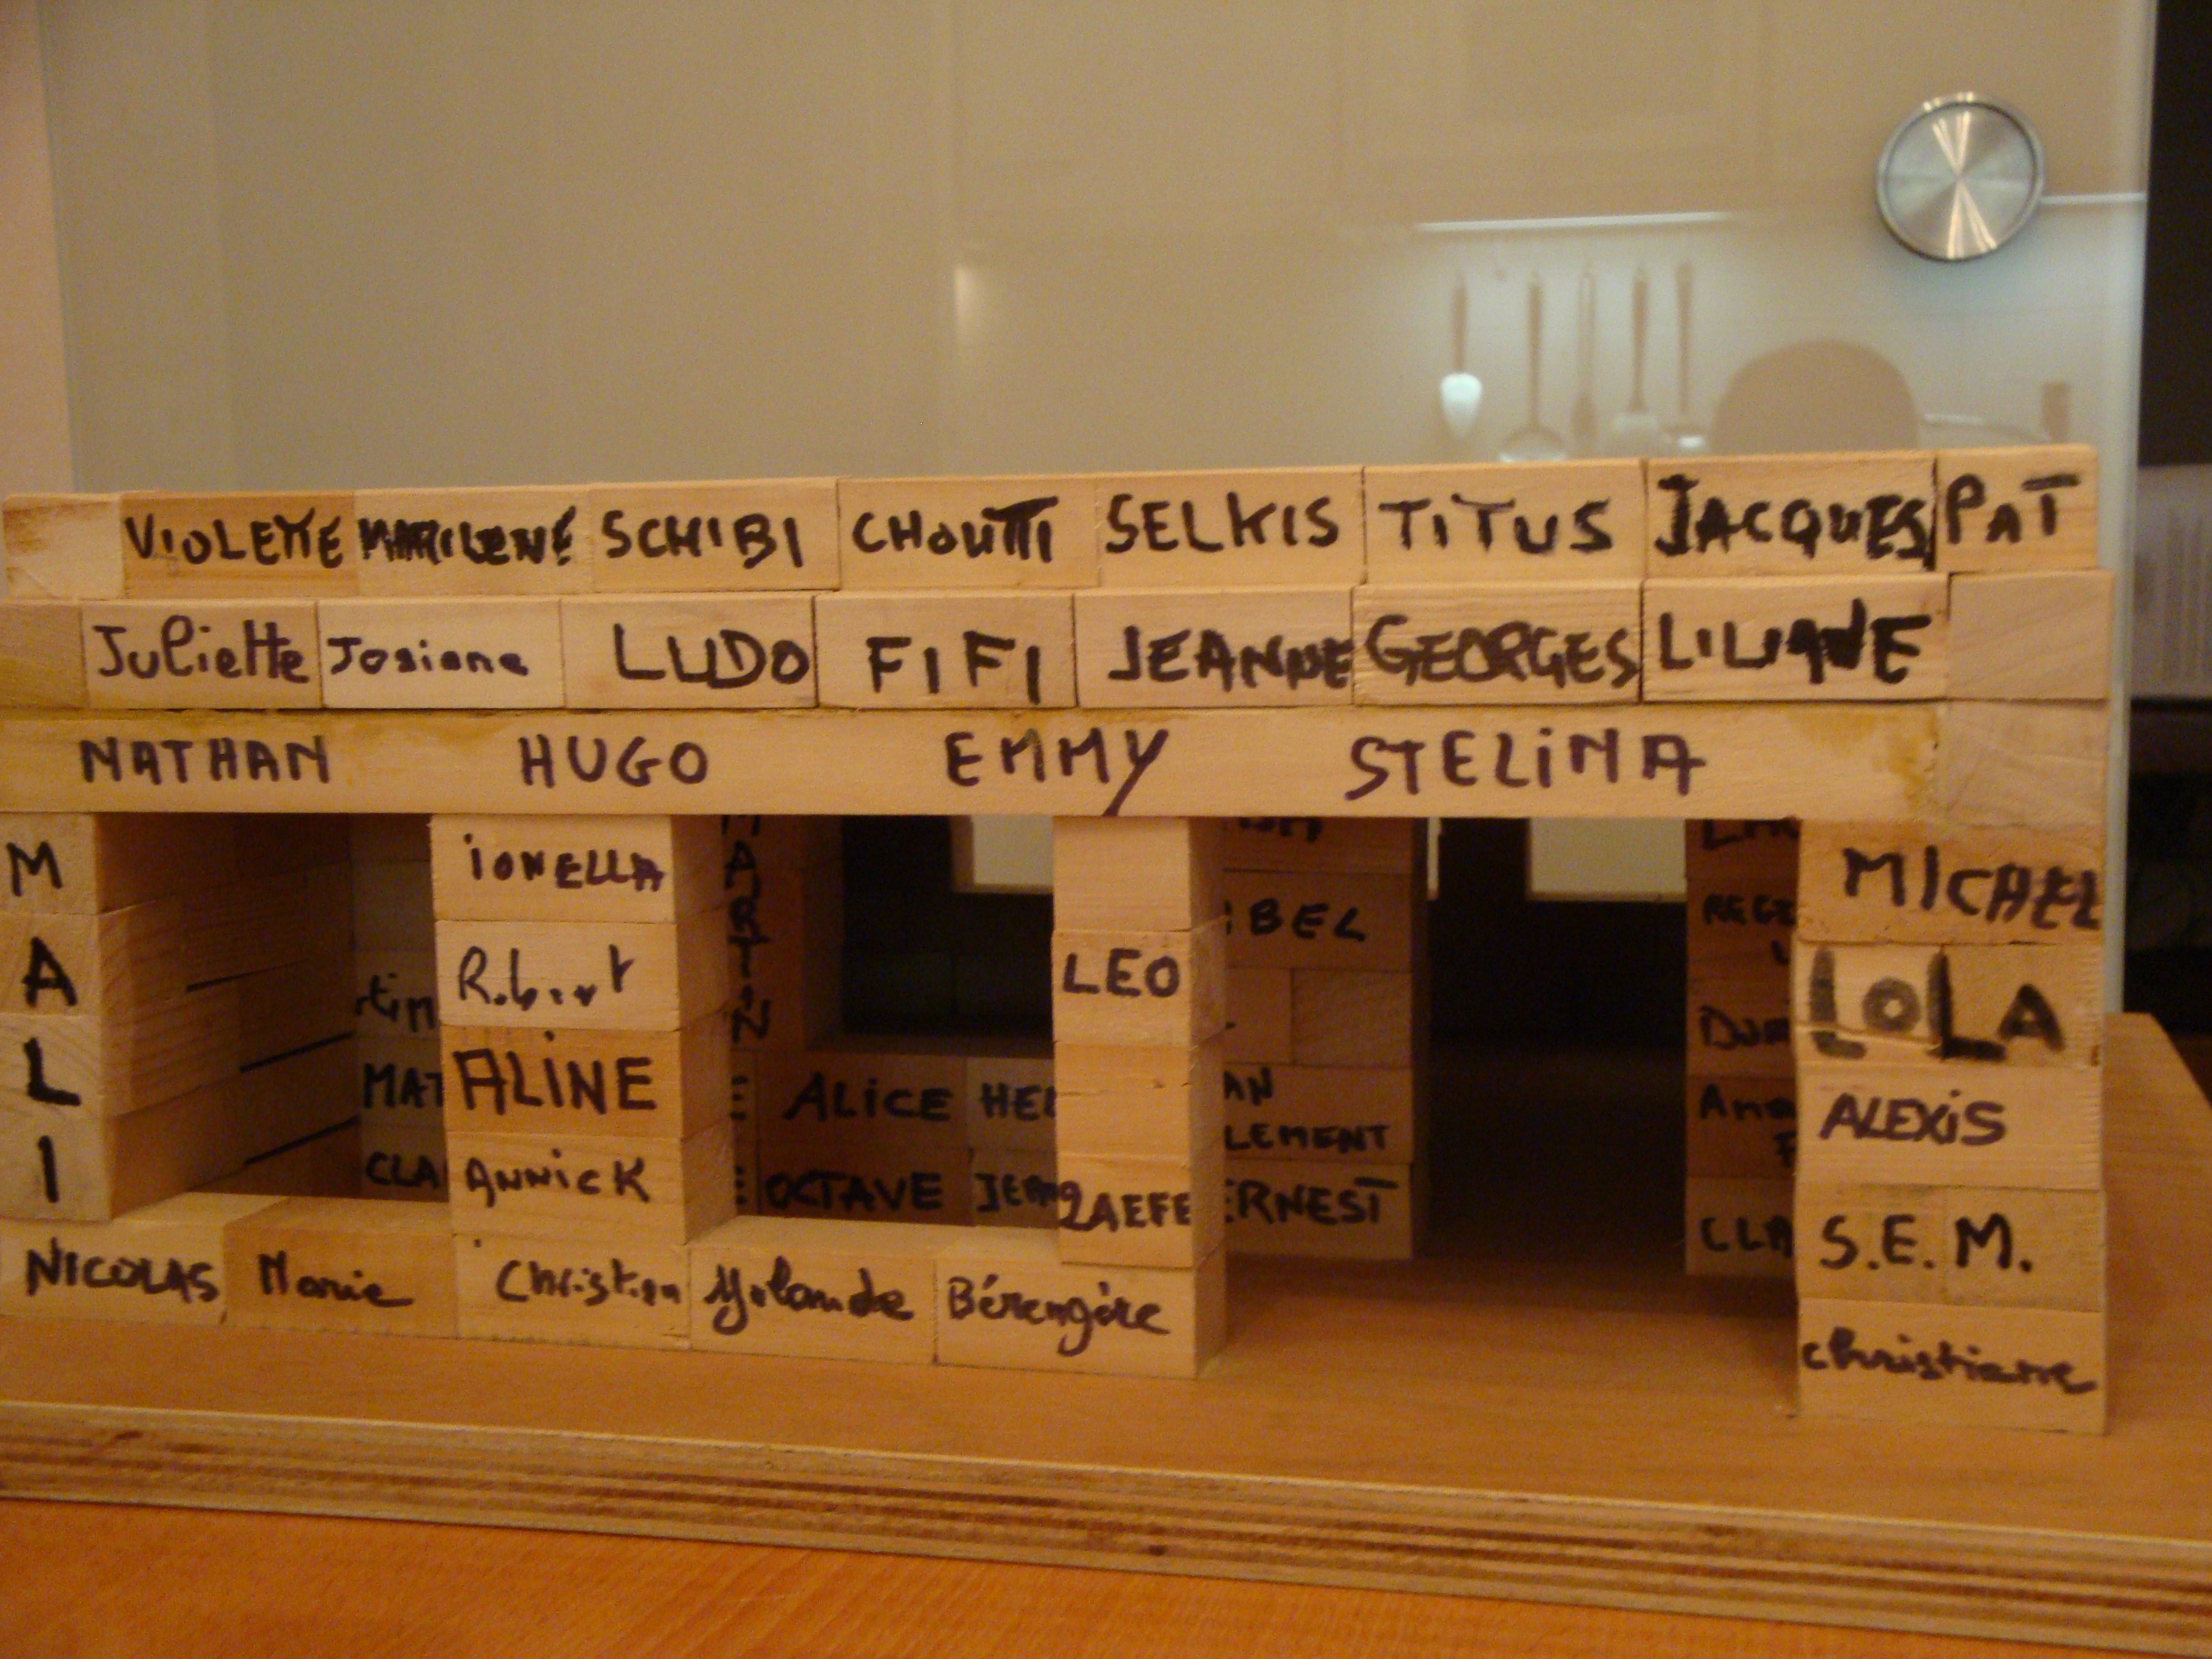 VIOLETTE MARILENE SCHIBI CHOUTTI SELKIS TITUS JACQUES PAT
Juliette Josiane LUDO FIFI JEANNE GEORGES LILIANE
NATHAN HUGO EMMY STELINA
MALI
IONELLA
ALINE
ANNICK
MARTIN
ALICE HEL
OCTAVE
LEO
IBEL
AN
LEMENT
ERNEST
MAT
CLA
CLA
MICHEL
LOLA
ALEXIS
S.E.M.
Christiane
NICOLAS Marie Christian Yolande Bérengère